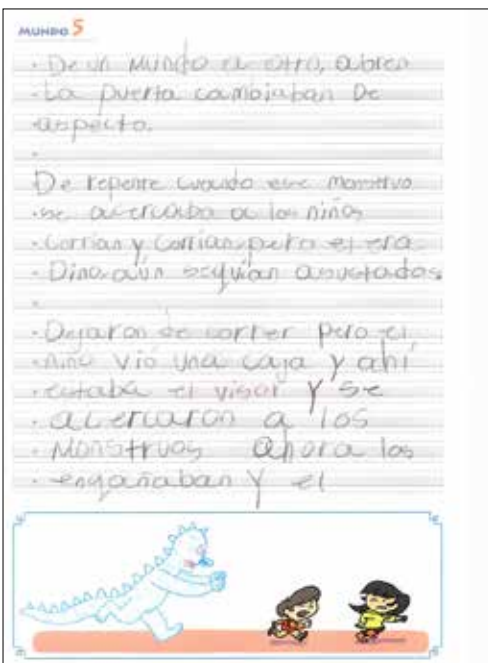 MUNDO 5
· De un Mundo a otro, abren
· La puerta cambiaban De
aspecto.
·
De repente cuando ese monstruo
· se acercaba a los niños
· Corrian y Corrian, pero el era
· Dino, aún seguían asustados.
·
· Dejaron de correr pero el
· niño vió una caja y ahí
· estaba el visor y se
· acercaron a los
· Monstruos Ahora los
· engañaban y el